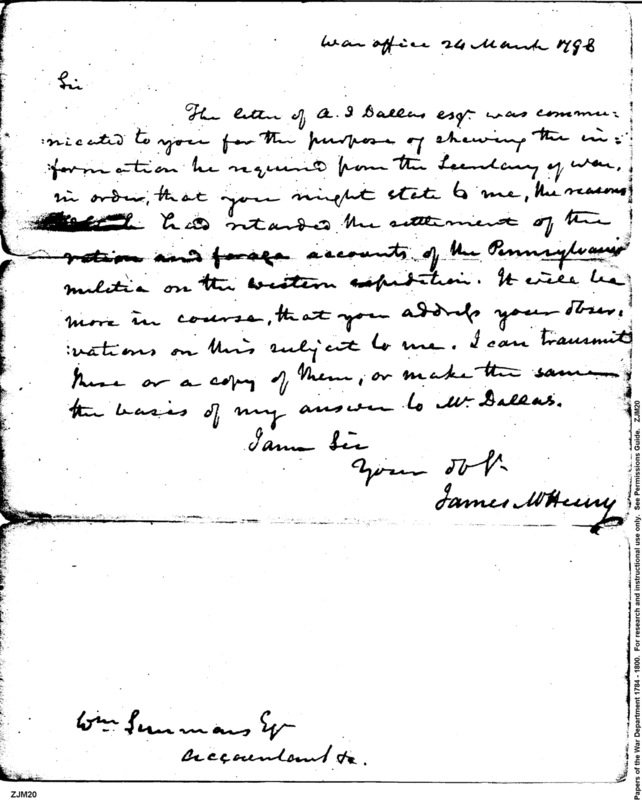 War office 24 March 1798
Sir
The letter of A. J Dallas esqr. was commu=
:nicated to you for the purpose of shewing the in=
formation he required from the Secretary of war,
in order, that you might state to me, the reasons
had retarded the settlement of the
ration and forage accounts of the Pennsylvania
militia on the western expedition. It will be
more in course, that you address your obser:
:vations on this subject to me. I can transmit
these or a copy of them, or make the same
the basis of my answer to Mr. Dallas.
I am Sir
Your ob St.
James McHenry
Wm Simmons Esqr
Accountant &c.
ZJM20
Papers of the War Department 1784 - 1800. For research and instructional use only. See Permissions Guide. ZJM20